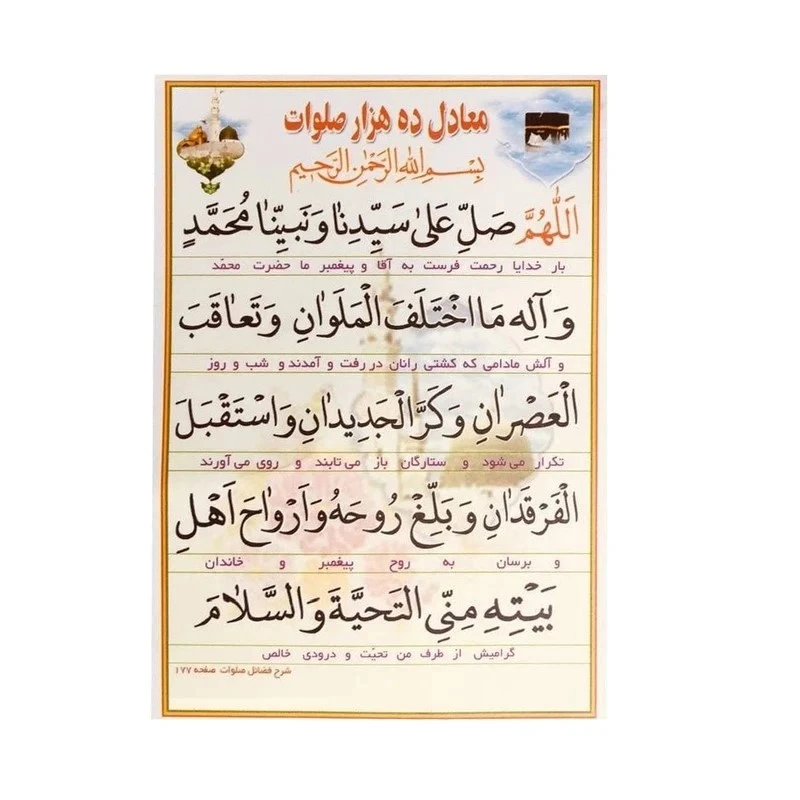 معادل ده هزار صلوات
بِسْمِ اللهِ الرَّحْمٰنِ الرَّحيمِ
اَللّٰهُمَّ صَلِّ عَلىٰ سَيِّدِنٰا وَ نَبِيِّنٰا مُحَمَّدٍ
بار خدایا رحمت فرست به آقا و پیغمبر ما حضرت محمّد
وَ آلِهِ مَا اخْتَلَفَ الْمَلَوٰانِ وَ تَعٰاقَبَ
و آلش مادامی که کشتی رانان در رفت و آمدند و شب و روز
الْعَصْرٰانِ وَ كَرَّ الْجَديدٰانِ وَ اسْتَقْبَلَ
تکرار می شود و ستارگان باز می تابند و روی می آورند
الْفَرْقَدٰانِ وَ بَلِّغْ رُوحَهُ وَ اَرْوٰاحَ اَهْلِ
و برسان به روح پیغمبر و خاندان
بَيْتِهِ مِنِّي التَّحِيَّةَ وَ السَّلٰامَ
گرامیش از طرف من تحیّت و درودی خالص
شرح فضائل صلوات صفحه ۱۷۷